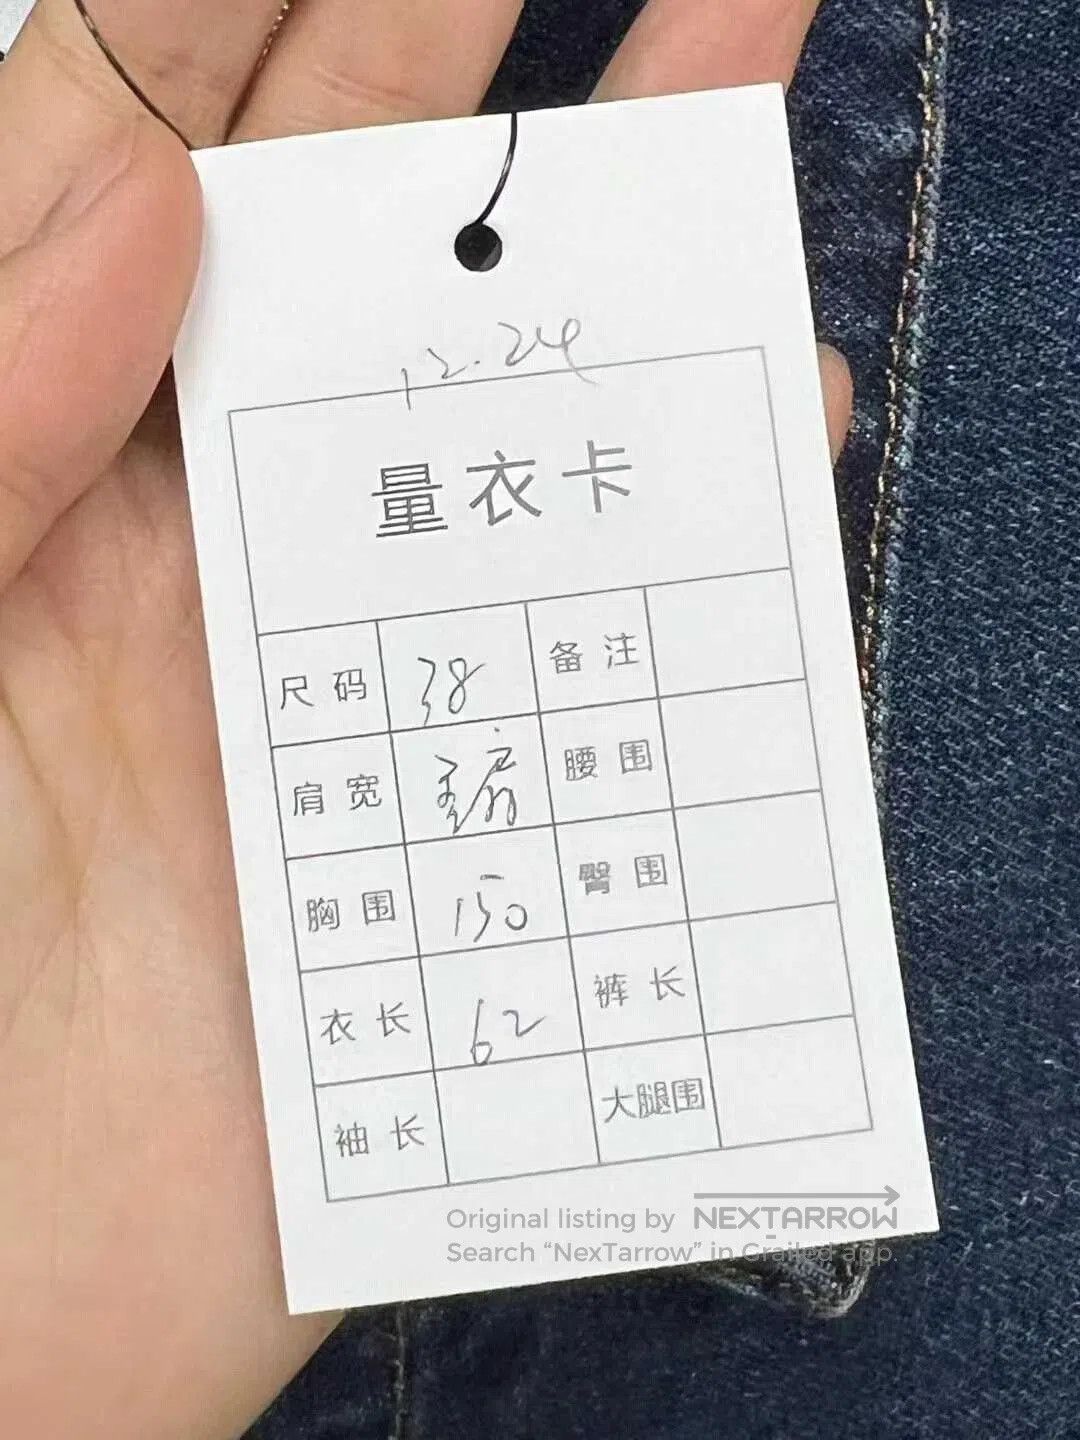 12.24
量衣卡
尺码 38 备注
肩宽 垂肩 腰围
胸围 150 臀围
衣长 62 裤长
袖长 大腿围
Original listing by NEXTARROW
Search “NexTarrow” in Grailed app.